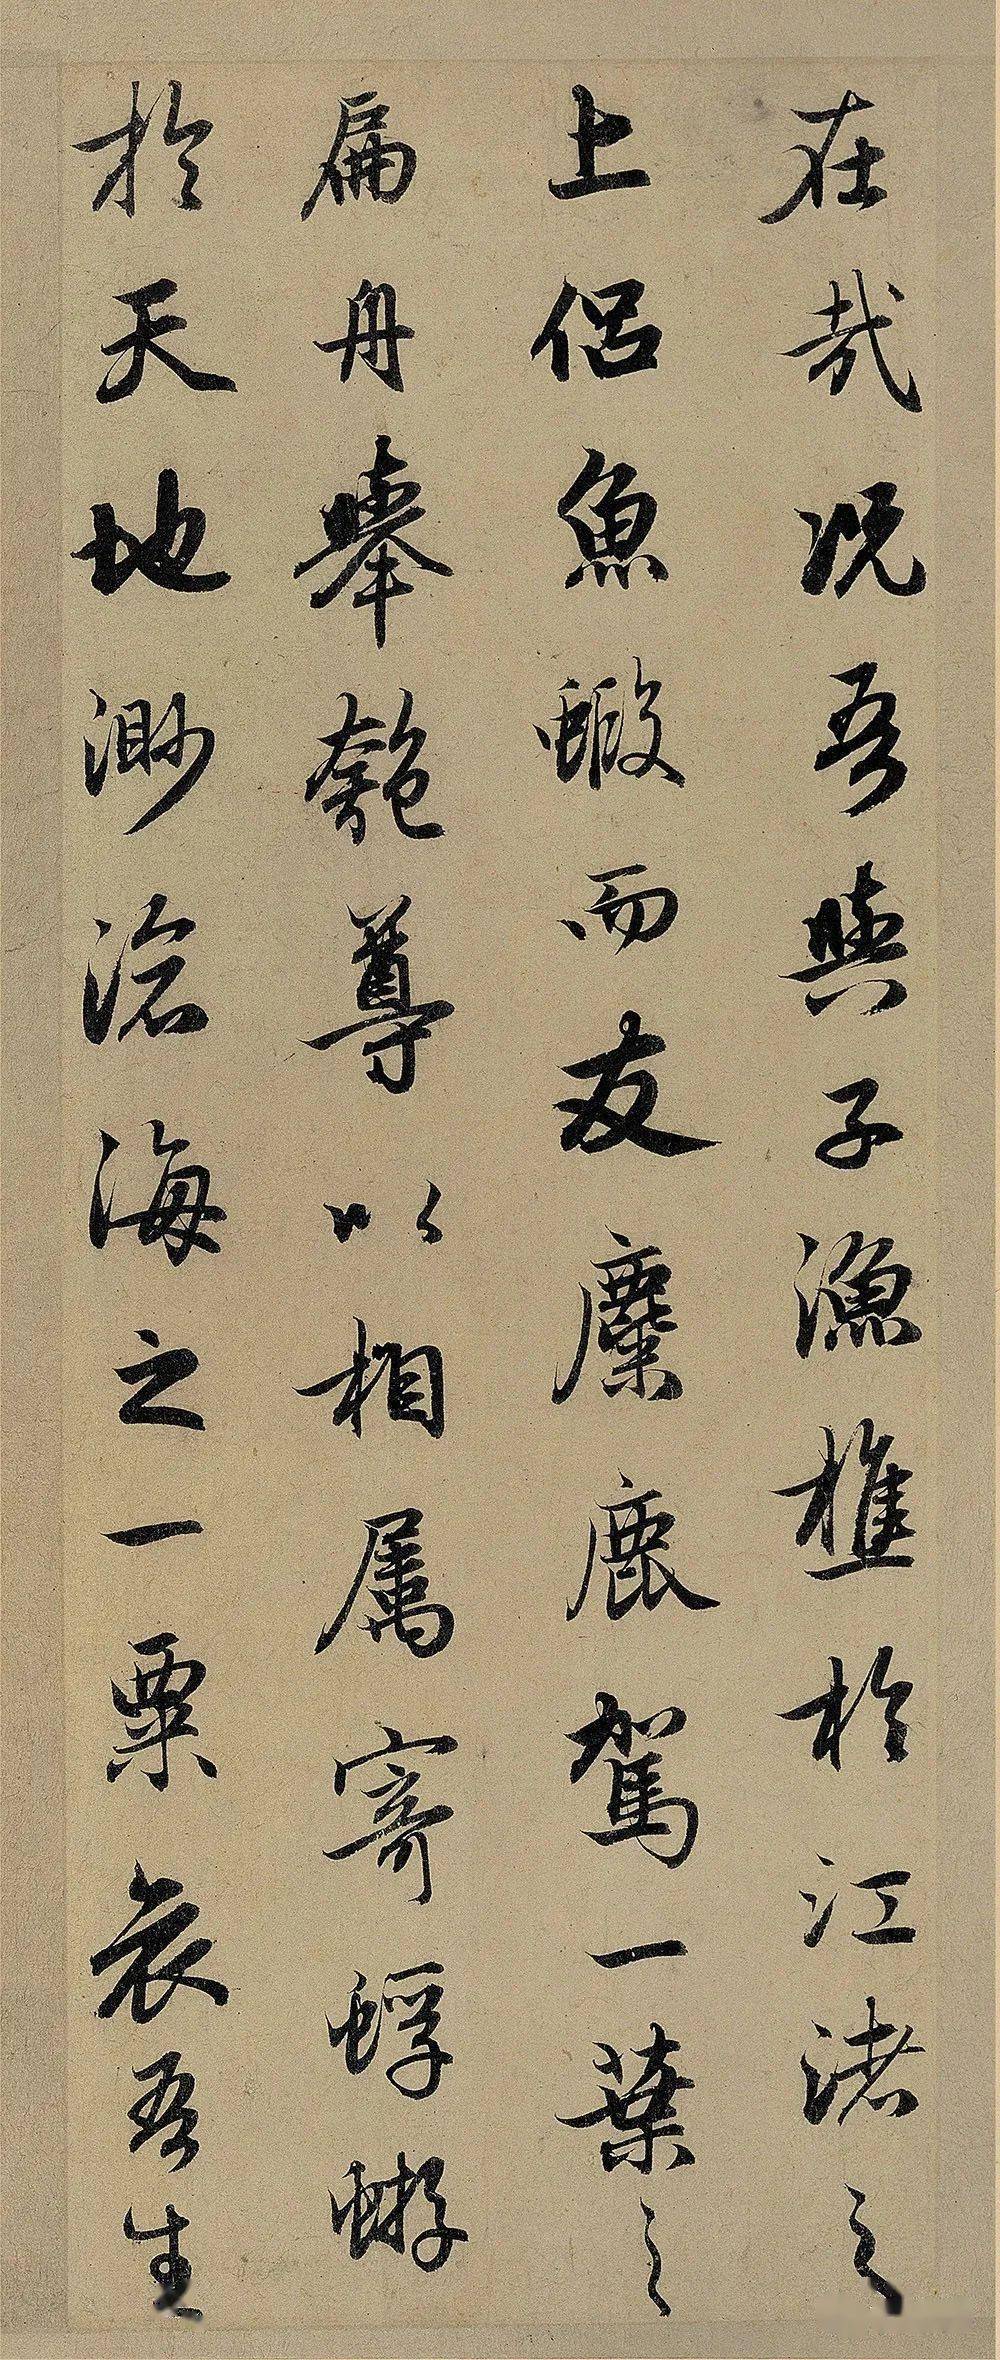 在哉況吾與子漁樵於江渚之
上侶魚蝦而友麋鹿駕一葉之
扁舟舉匏尊以相屬寄蜉蝣
於天地渺滄海之一粟哀吾生